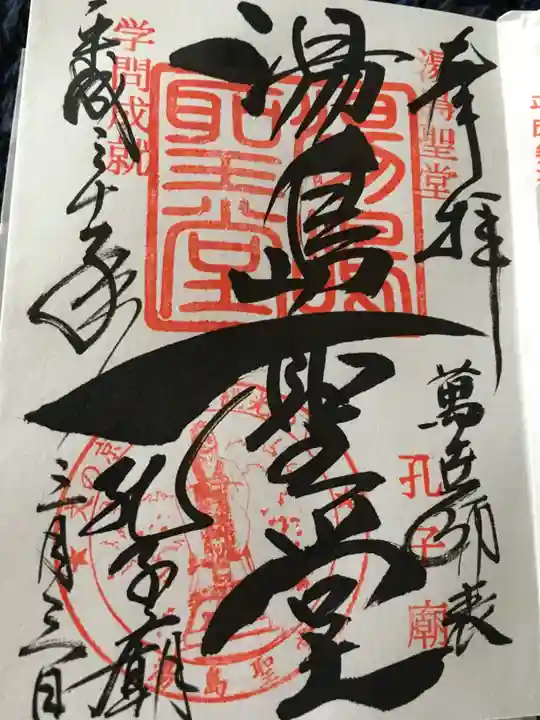 奉拝
湯島聖堂
萬世師表
孔子廟
湯島聖堂
湯島聖堂
孔子廟
学問成就
平成三十年
三月三日